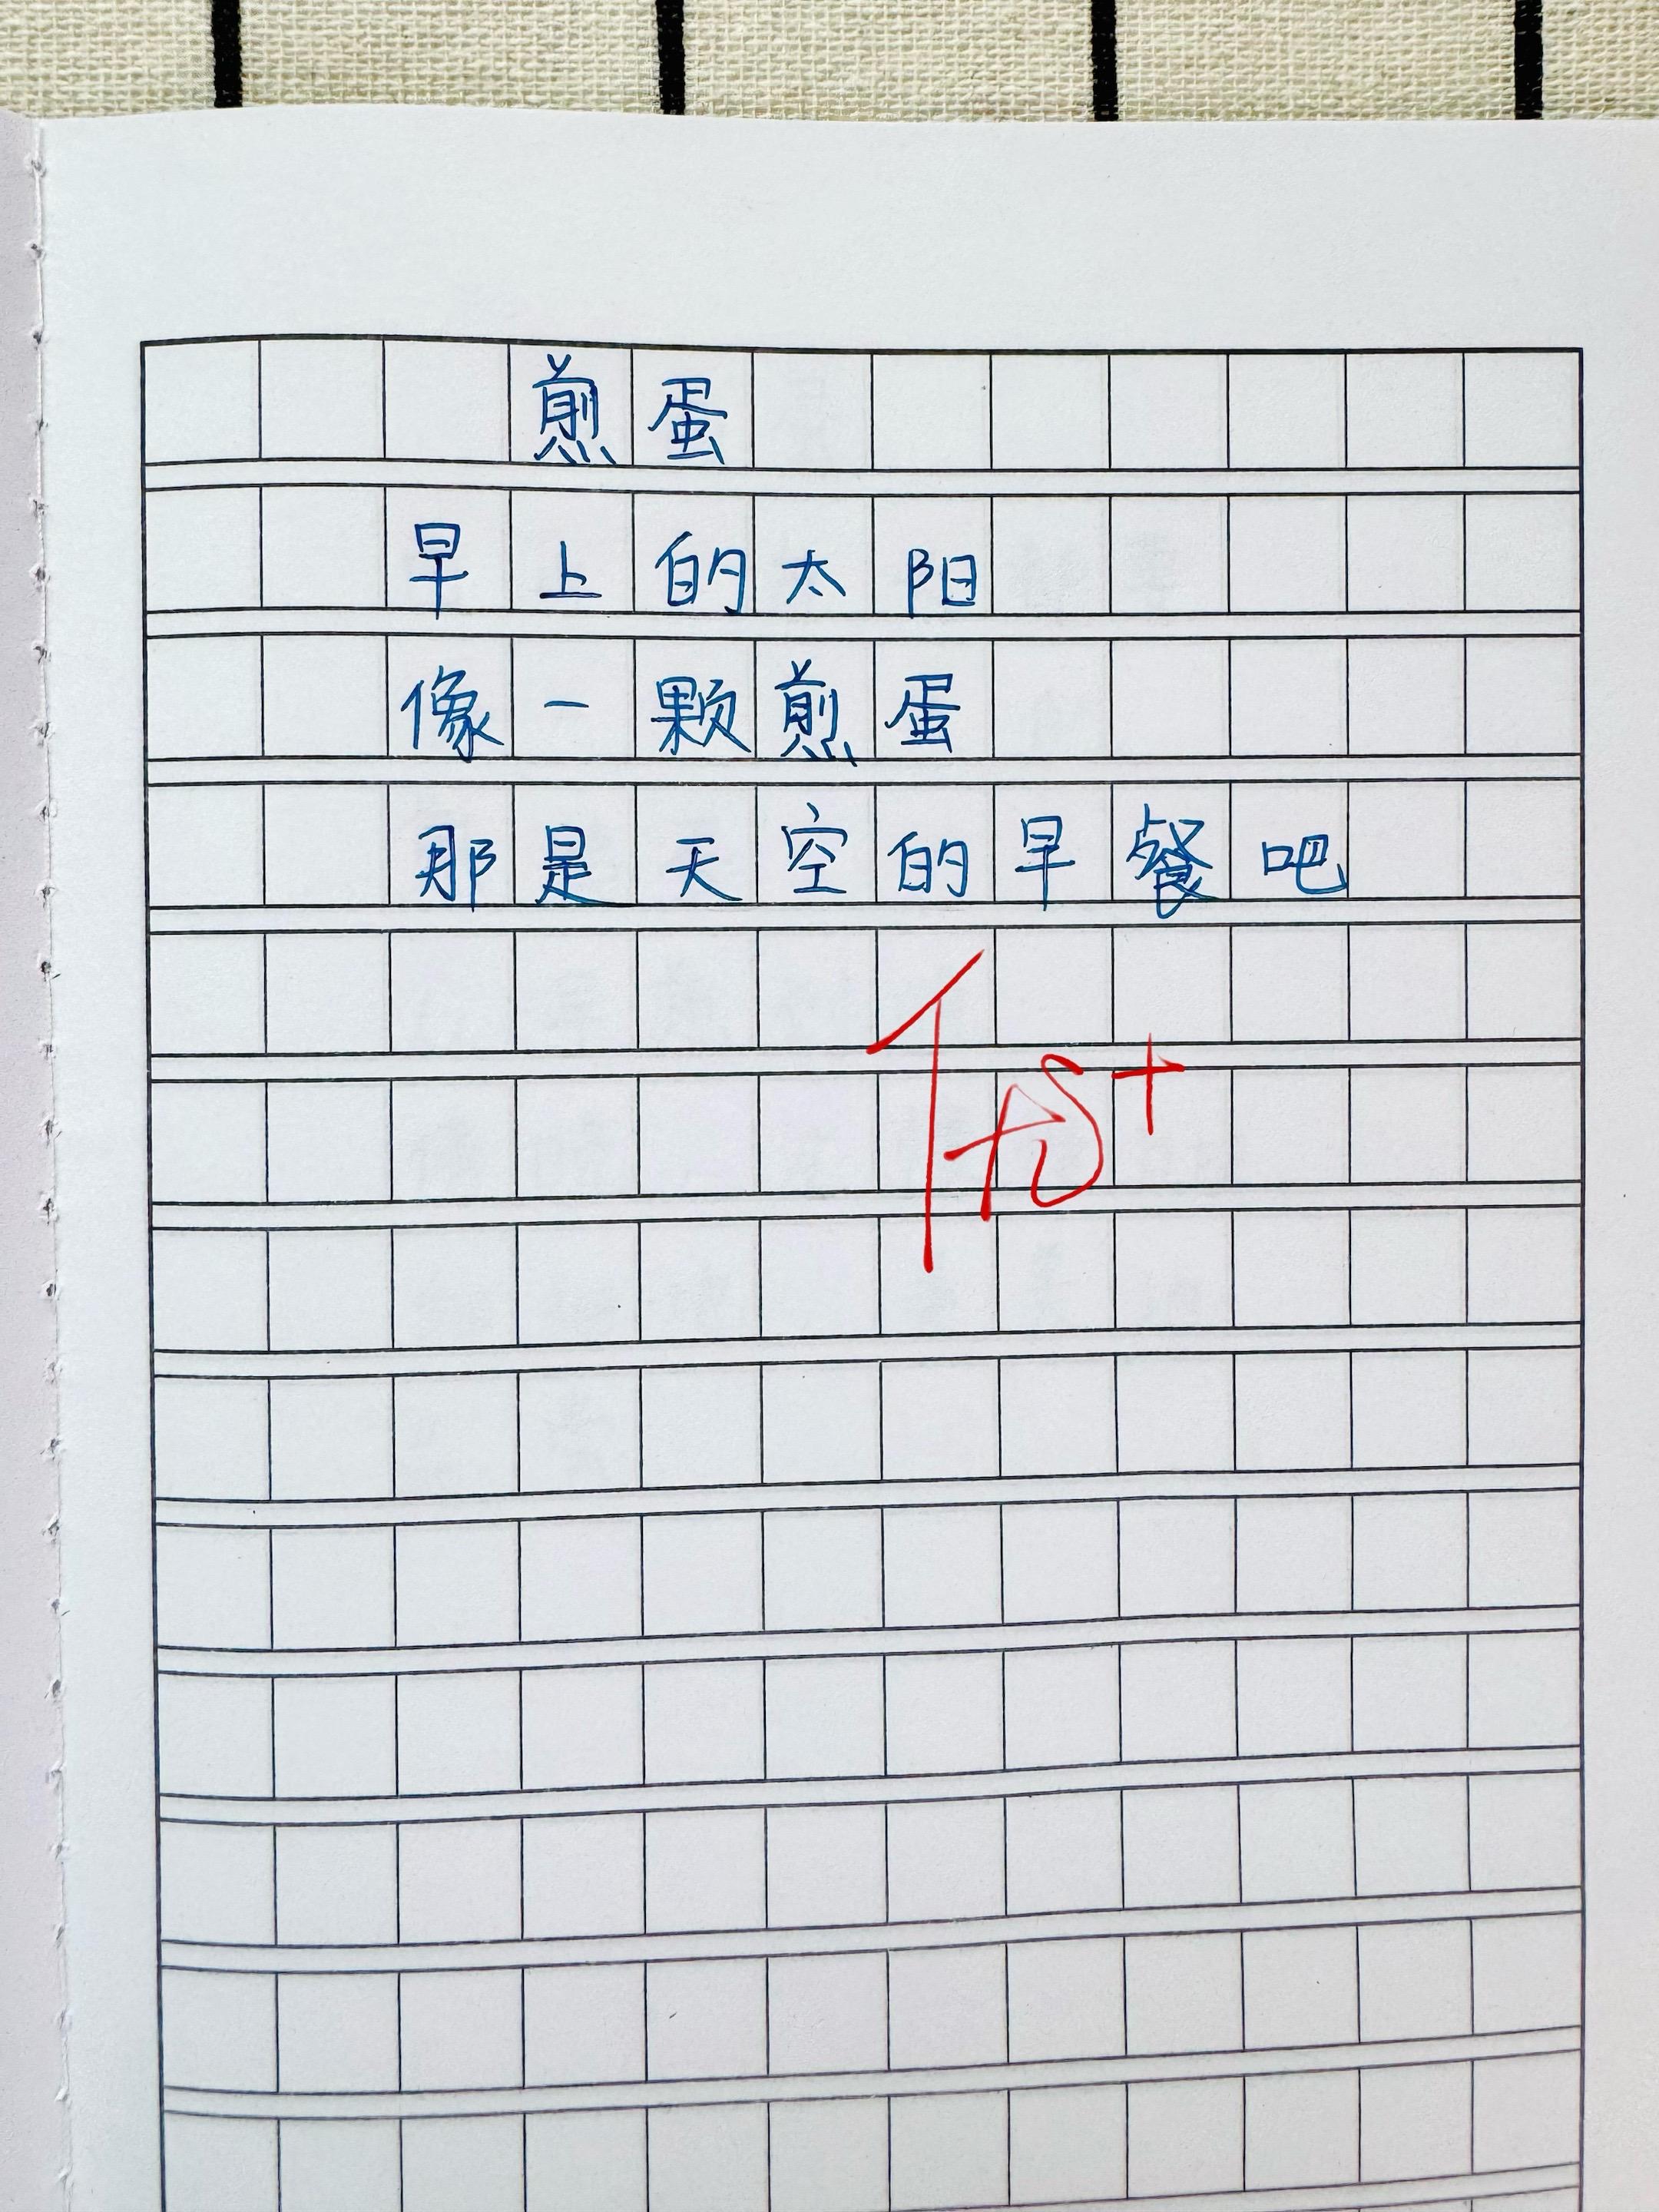 煎蛋
早上的太阳
像一颗煎蛋
那是天空的早餐吧